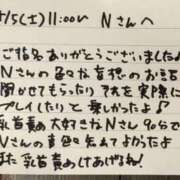 4/5(土)11:00〜 Nさんへ
ご指名ありがとうございました♪
Nさんの色々な妄想のお話
聞かせてもらったり それを実際に
プレイしたりと 楽しかったよ♪
乳首責め大好きなNさん 90分で
Nさんの 色 知れてよかったよ
また 乳首責めてあげるね!